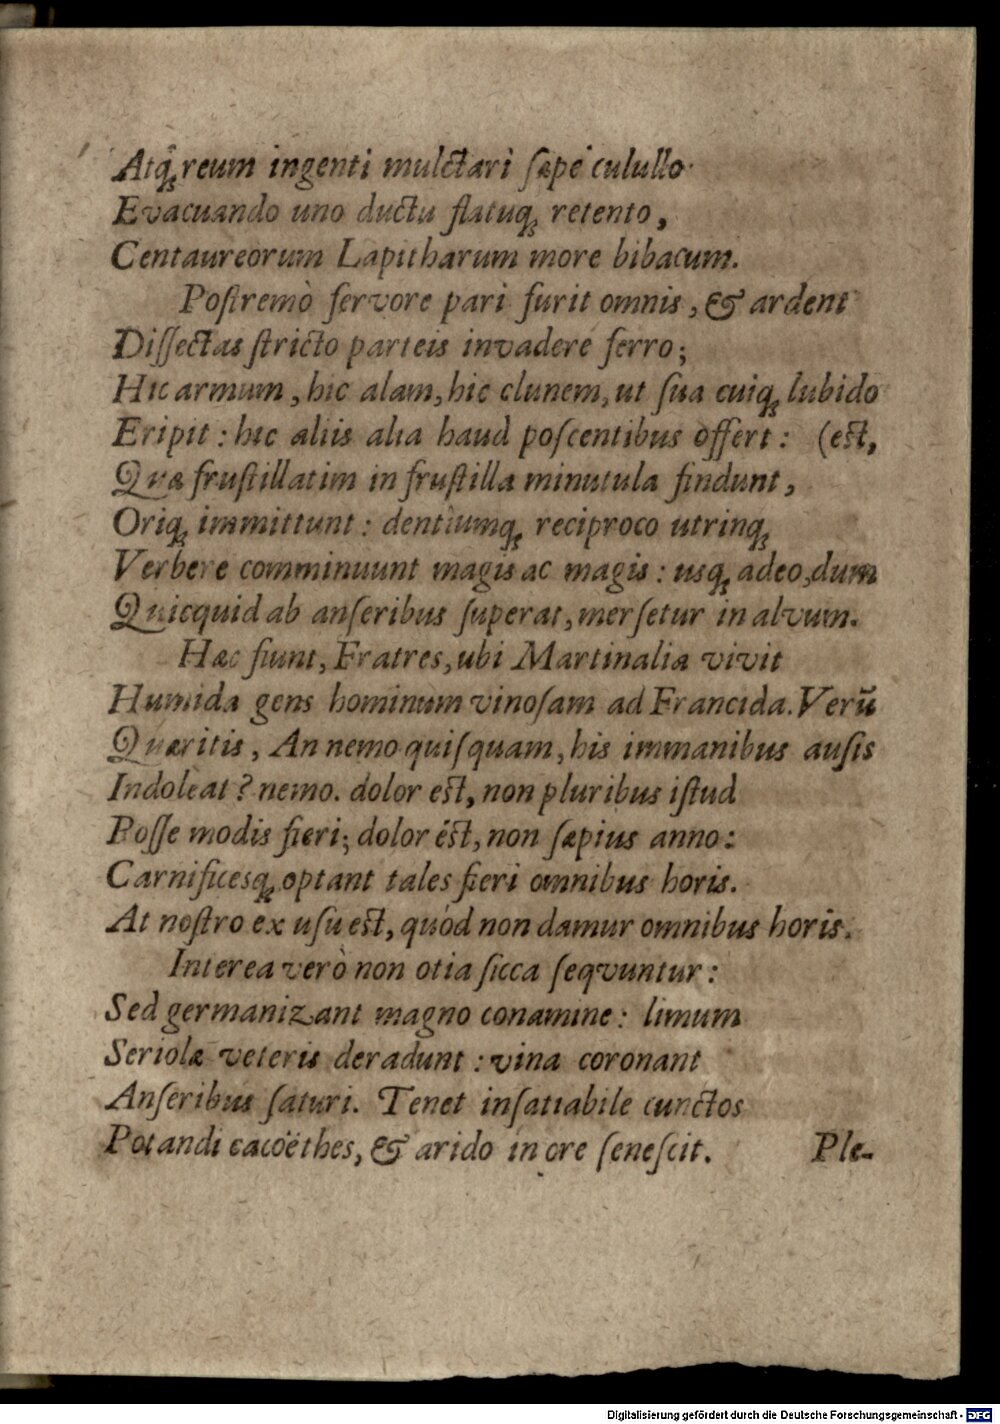 Atq́ꝫ reum ingenti mulctari sæpe culullo
Evacuando uno ductu flatuqꝫ retento,
Centaureorum Lapitharum more bibacum.
Postremò fervore pari furit omnis, & ardent
Dissectas stricto parteis invadere ferro;
Hic armum, hic alam, hic clunem, ut sua cuiqꝫ lubido
Eripit: hic aliis alia haud poscentibus offert: (est,
Quæ frustillatim in frustilla minutula findunt,
Oriqꝫ immittunt: dentiumqꝫ reciproco utrinqꝫ
Verbere comminuunt magis ac magis: usqꝫ adeo, dum
Quicquid ab anseribus superat, mersetur in alvum.
Hæc fiunt, Fratres, ubi Martinalia vivit
Humida gens hominum vinosam ad Francida. Verū
Quæritis, An nemo quisquam, his immanibus ausis
Indoleat? nemo. dolor est, non pluribus istud
Posse modis fieri; dolor ést, non sæpius anno:
Carnificesqꝫ optant tales fieri omnibus horis.
At nostro ex usu est, quòd non damur omnibus horis.
Interea verò non otia sicca seqvuntur:
Sed germanizant magno conamine: limum
Seriolæ veteris deradunt: vina coronant
Anseribus saturi. Tenet insatiabile cunctos
Potandi cacoëthes, & arido in ore senescit.
Ple-
Digitalisierung gefördert durch die Deutsche Forschungsgemeinschaft - DFG